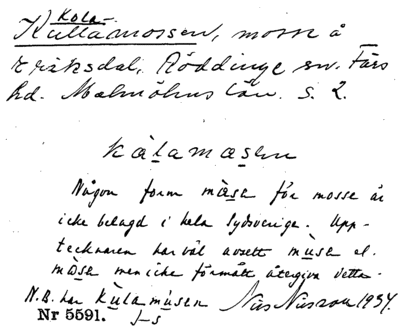 Kola-
Kullamossen, mosse å
Eriksdal, Röddinge sn. Färs
hd. Malmöhus län. S. 2.
kàlamasen
Någon form màsa för mosse är
icke belagd i hela Sydsverige. Upp-
tecknaren har väl avsett mùsa el.
mòsa men icke förmått återgiva detta.
N.B. har kùlamùsen Nils Nilsson 1934.
Nr 5591. J-s